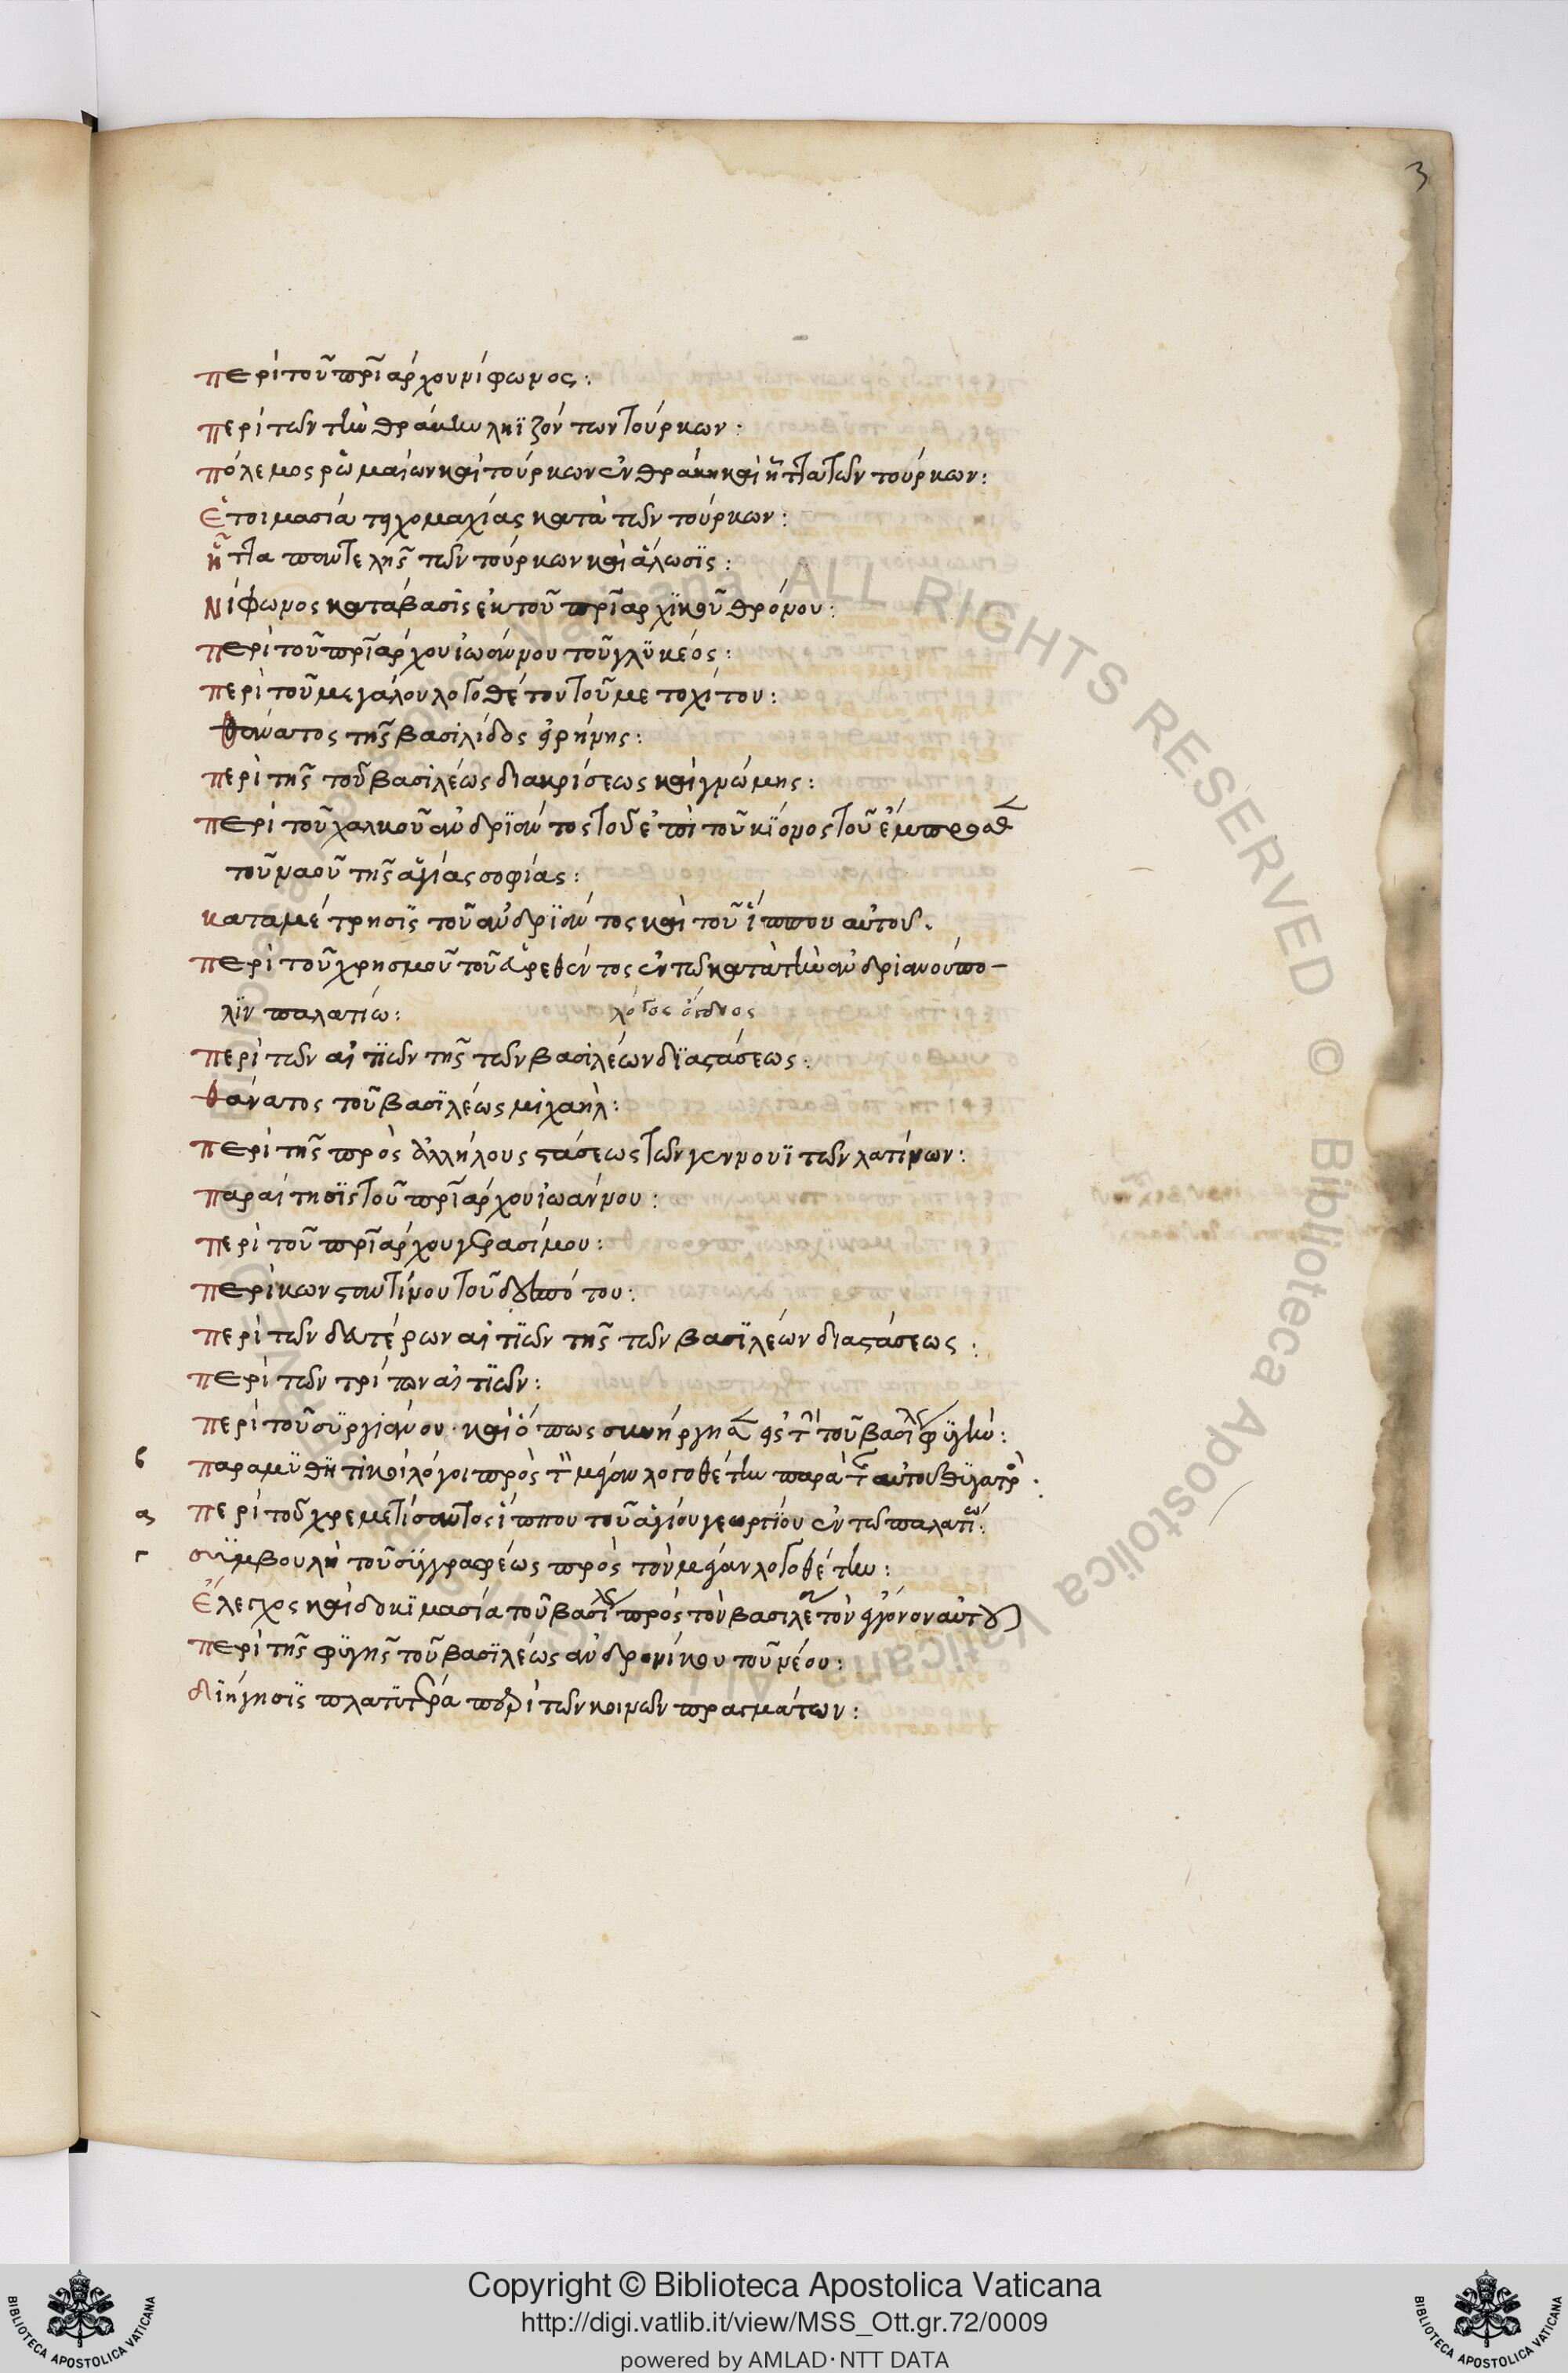 3
περὶ τοῦ πρϊάρχου νίφωνος:
περὶ τῶν τὴν θράκην ληϊζόντων τούρκων:
πόλεμος ῥωμαίων καὶ τούρκων ἐν θράκη καὶ ἧττα τῶν τούρκων:
ἑτοιμασία τειχομαχίας κατὰ τῶν τούρκων:
ἧττα παντελὴς τῶν τούρκων καὶ ἅλωσϊς:
Νίφωνος κατάβασις ἐκ τοῦ πρϊαρχϊκοῦ θρόνου:
περὶ τοῦ πρϊάρχου ἰωάννου τοῦ γλϋκέος:
περὶ τοῦ μεγάλου λογοθέτου τοῦ μετοχίτου:
θάνατος τῆς βασιλίδος εἰρήνης:
περὶ τῆς τοῦ βασιλέως διακρίσεως καὶ γνώμης:
περὶ τοῦ χαλκοῦ ἀνδρϊάντος τοῦ ἐπὶ τοῦ κίονος τοῦ ἔμπροσθ
τοῦ ναοῦ τῆς ἁγίας σοφίας:
καταμέτρησϊς τοῦ ἀνδρϊάντος καὶ τοῦ ἵππου αὐτοῦ.
περὶ τοῦ χρησμοῦ τοῦ εὑρεθέντος ἐν τῶ κατὰ τὴν ἀνδριανούπο-
λϊν παλατίω:
λόγος ὄγδοος
περὶ τῶν αἰτϊῶν τῆς τῶν βασιλέων δϊαστάσεως:
θάνατος τοῦ βασϊλέως μιχαήλ:
περὶ τῆς πρὸς ἀλλήλους στάσεως τῶν γεννουϊτῶν λατίνων:
παραίτησϊς τοῦ πρϊάρχου ἰωάννου:
περὶ τοῦ πρϊάρχου γερασίμου:
περὶ κωνσταντίνου τοῦ δεσπότου:
περὶ τῶν δευτέρων αἰτϊῶν τῆς τῶν βασϊλέων διαστάσεως:
περὶ τῶν τρίτων αἰτϊῶν:
περὶ τοῦ συργιάννου· καὶ ὅπως συνήργησ εἰς τ τοῦ βασιλ φϋγήν:
β παραμϋθητικοὶ λόγοι πρὸς τ μέγαν λογοθέτην παρὰ τ αὐτοῦ θϋγατρ:
α περὶ τοῦ χρεμετίσαντος ἵππου τοῦ ἁγίου γεωργίου ἐν τῶ παλατίω:
γ συμβουλὴ τοῦ συγγραφέως πρὸς τὸν μέγαν λογοθέτην:
ἔλεγχος καὶ δοκϊμασία τοῦ βασιλ πρὸς τὸν βασιλε τὸν ἔγγονον αὐτοῦ
περὶ τῆς φϋγῆς τοῦ βασϊλέως ἀνδρονίκου τοῦ νέου:
διήγησϊς πλατϋτέρα περὶ τῶν κοινῶν πραγμάτων:
ALL RIGHTS RESERVED © Biblioteca Apostolica Vaticana
Copyright © Biblioteca Apostolica Vaticana
http://digi.vatlib.it/view/MSS_Ott.gr.72/0009
powered by AMLAD·NTT DATA
BIBLIOTECA APOSTOLICA VATICANA
BIBLIOTECA APOSTOLICA VATICANA